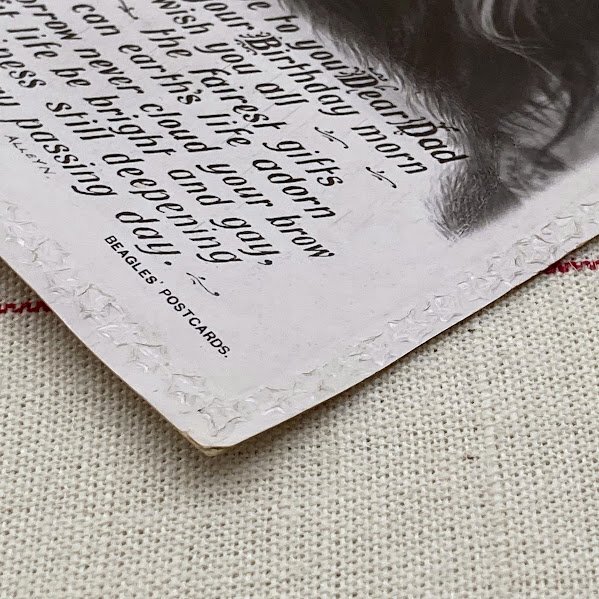 e to you Dear Dad
your Birthday morn
wish you all
the fairest gifts
can earth's life adorn
orrow never cloud your brow
t life be bright and gay,
iness still deepening
y passing day.
ALLEYN.
BEAGLES' POSTCARDS.